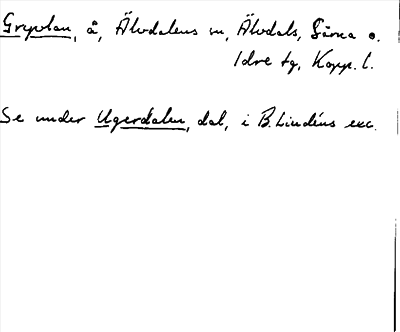 Gryvlan, å, Älvdalens sn, Älvdals, Särna o.
Idre tg, Kopp. l.
Se under Ugerdalen, dal, i B. Lindéns exc.